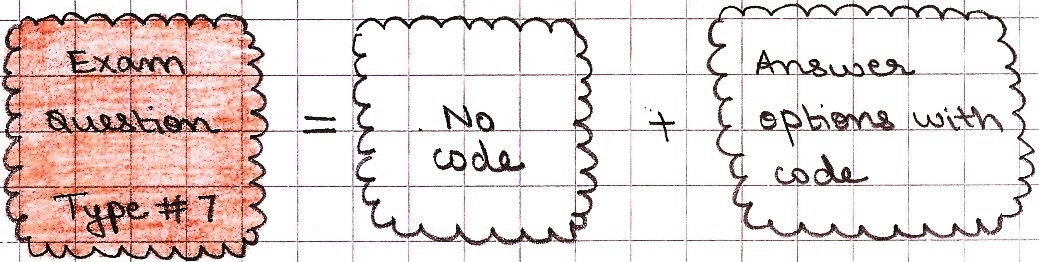 Exam
Question
Type # 7
=
No
code
+
Answer
options with
code